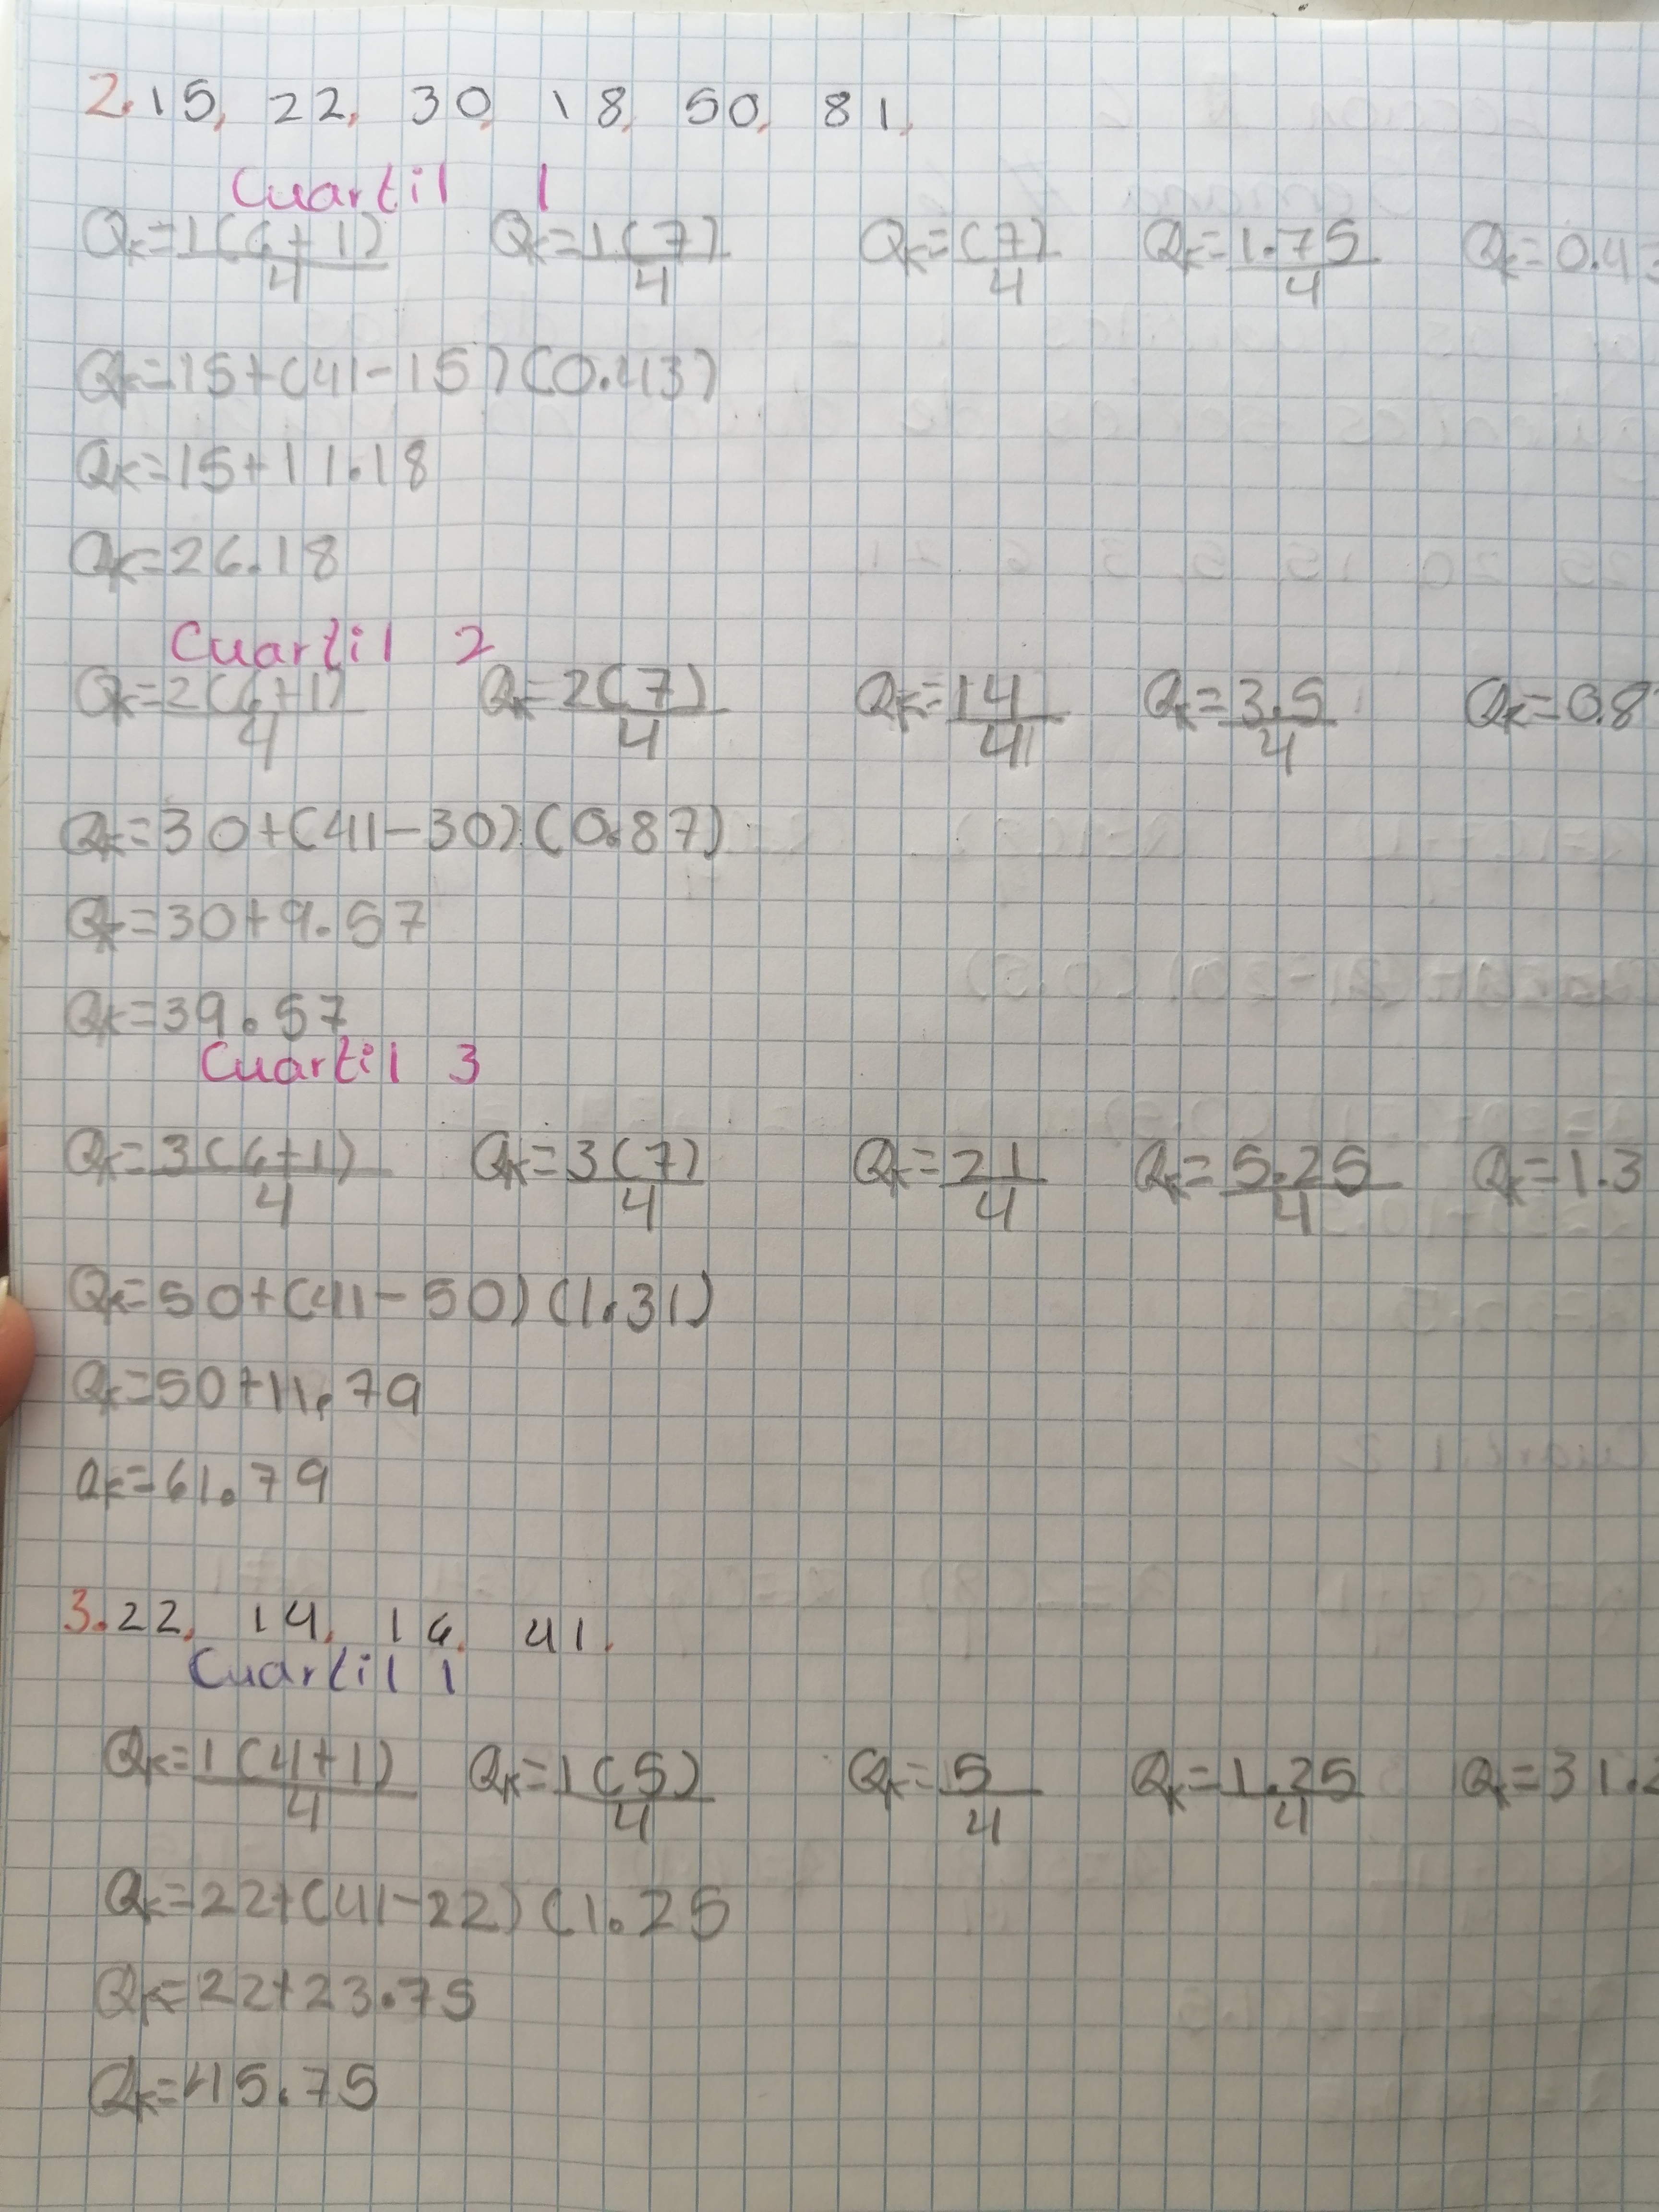 2. 15, 22, 30, 18, 50, 81,
Cuartil 1
Qk=1(6+1)/4 Qk=1(7)/4 Qk=(7)/4 Qk=1.75/4 Qk=0.43
Qk=15+(41-15)(0.43)
Qk=15+11.18
Qk=26.18
Cuartil 2
Qk=2(6+1)/4 Qk=2(7)/4 Qk=14/4 Qk=3.5/4 Qk=0.8
Qk=30+(41-30)(0.87)
Qk=30+9.57
Qk=39.57
Cuartil 3
Qk=3(6+1)/4 Qk=3(7)/4 Qk=21/4 Qk=5.25/4 Qk=1.3
Qk=50+(41-50)(1.31)
Qk=50+11.79
Qk=61.79
3. 22, 14, 16, 41.
Cuartil 1
Qk=1(4+1)/4 Qk=1(5)/4 Qk=5/4 Qk=1.25/4 Qk=31.2
Qk=22+(41-22)(1.25
Qk=22+23.75
Qk=45.75